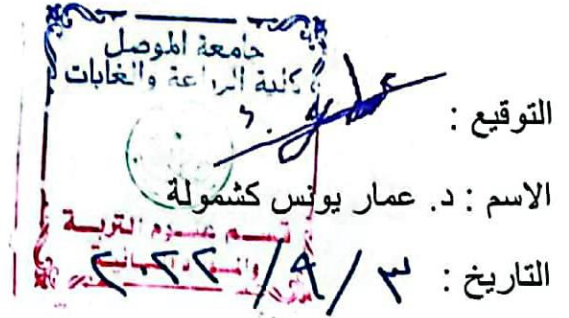 جامعة الموصل
كلية الزراعة والغابات
التوقيع :
الاسم : د. عمار يونس كشمولة
قسم علوم التربة
والموارد المائية
التاريخ : ٣ / ٩ / ٢٠٢٢